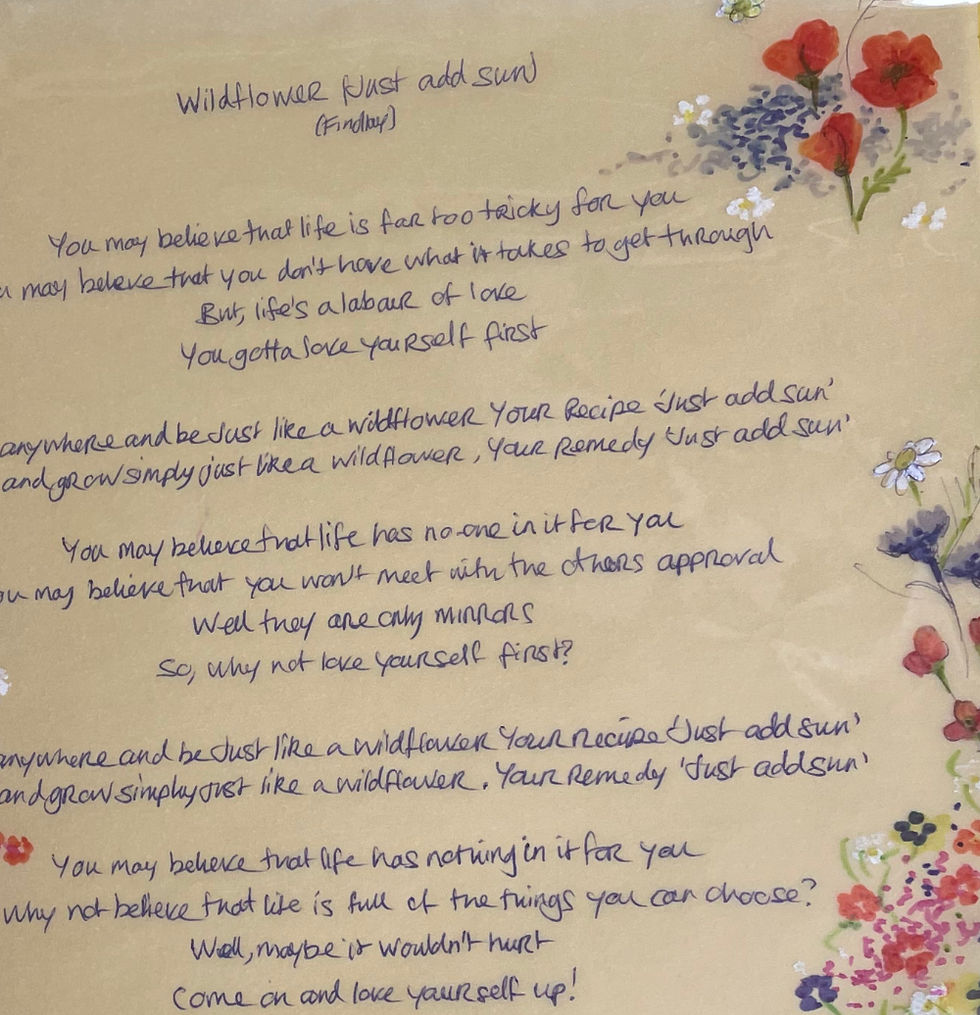 Wildflower (Just add sun)
(Findlay)
You may believe that life is far too tricky for you
may believe that you don't have what it takes to get through
But, life's a labour of love
You gotta love yourself first
anywhere and be Just like a wildflower Your Recipe 'Just add sun'
and grow simply just like a wildflower, Your Remedy 'Just add sun'
You may believe that life has no-one in it for you
may believe that you won't meet with the others approval
Well they are only mirrors
So, why not love yourself first?
anywhere and be Just like a wildflower Your recipe 'Just add sun'
and grow simply just like a wildflower. Your Remedy 'Just add sun'
You may believe that life has nothing in it for you
Why not believe that life is full of the things you can choose?
Well, maybe it wouldn't hurt
Come on and love yourself up!